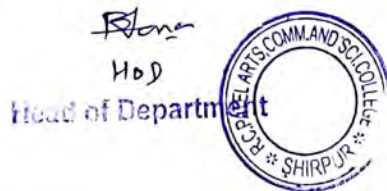 HOD
Head of Department
R.C.PATEL ARTS,COMM.AND SCI.COLLEGE
* SHIRPUR *